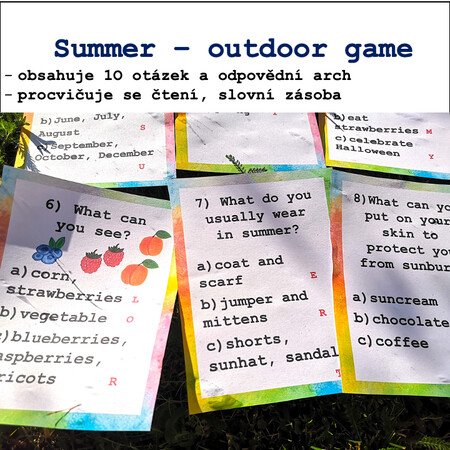 Summer – outdoor game
- obsahuje 10 otázek a odpovědní arch
- procvičuje se čtení, slovní zásoba
b)June, July,
August
S
c)September,
October, December
U
b)eat
strawberries M
c)celebrate
Halloween Y
6) What can
you see?
a)corn,
strawberries L
b)vegetable O
c)blueberries,
raspberries,
R
7) What do you
usually wear
in summer?
a)coat and
scarf E
b)jumper and
mittens R
c)shorts,
sunhat, sandal
8)What can you
put on your
skin to
protect you
from sunbur
a)suncream
b)chocolate
c)coffee